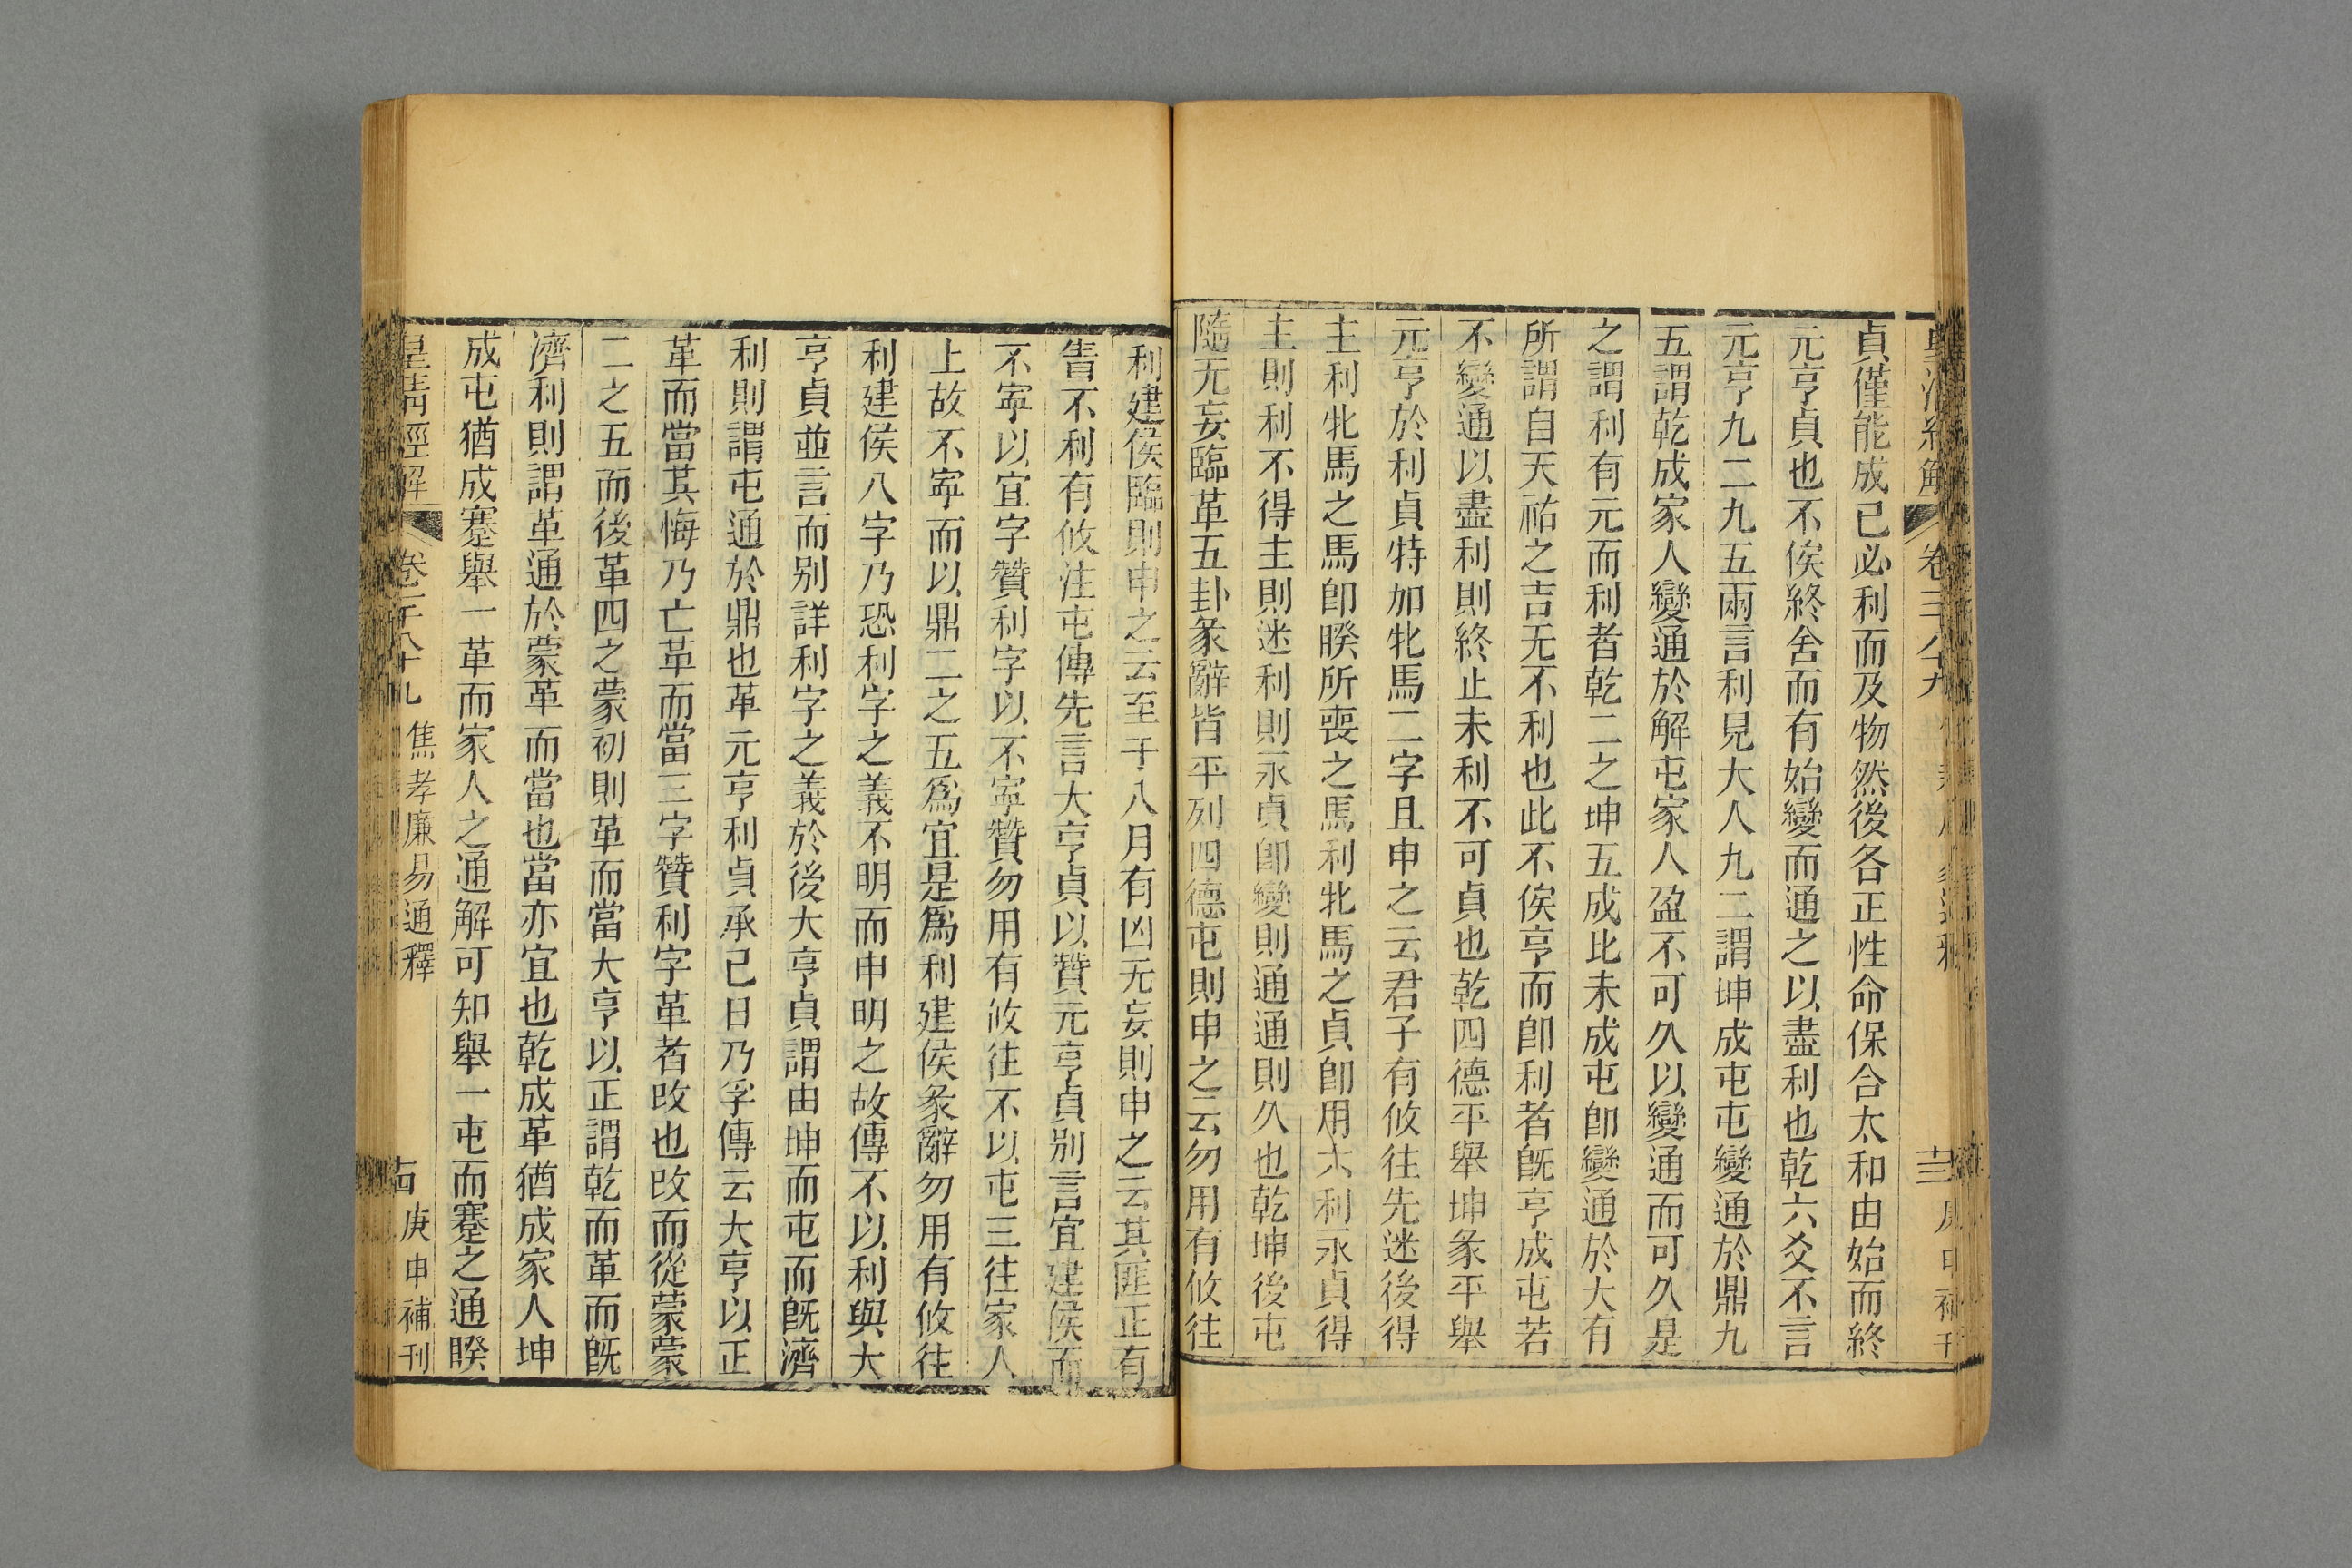 貞僅能成已必利而及物然後各正性命保合太和由始而終
元亨貞也不俟終舍而有始變而通之以盡利也乾六爻不言
元亨九二九五兩言利見大人九二謂坤成屯屯變通於鼎九
五謂乾成家人變通於解屯家人盈不可久以變通而可久是
之謂利有元而利者乾二之坤五成比未成屯卽變通於大有
所謂自天祐之吉无不利也此不俟亨而卽利者旣亨成屯若
不變通以盡利則終止未利不可貞也乾四德平舉坤彖平舉
元亨於利貞特加牝馬二字且申之云君子有攸往先迷後得
主利牝馬之馬卽睽所喪之馬利牝馬之貞卽用六利永貞得
主則利不得主則迷利則永貞卽變則通通則久也乾坤後屯
隨无妄臨革五卦彖辭皆平列四德屯則申之云勿用有攸往
利建侯臨則申之云至于八月有凶无妄則申之云其匪正有
眚不利有攸往屯傳先言大亨貞以贊元亨貞別言宜建侯而
不寍以宜字贊利字以不寍贊勿用有攸往不以屯三往家人
上故不寍而以鼎二之五爲宜是爲利建侯彖辭勿用有攸往
利建侯八字乃恐利字之義不明而申明之故傳不以利與大
亨貞並言而别詳利字之義於後大亨貞謂由坤而屯而旣濟
利則謂屯通於鼎也革元亨利貞承己日乃孚傳云大亨以正
革而當其悔乃亡革而當三字贊利字革者改也改而從蒙蒙
二之五而後革四之蒙初則革而當大亨以正謂乾而革而旣
濟利則謂革通於蒙革而當也當亦宜也乾成革猶成家人坤
成屯猶成蹇舉一革而家人之通解可知舉一屯而蹇之通睽
皇清經解
卷一千八十九
焦孝廉易通釋
十四
庚申補刊